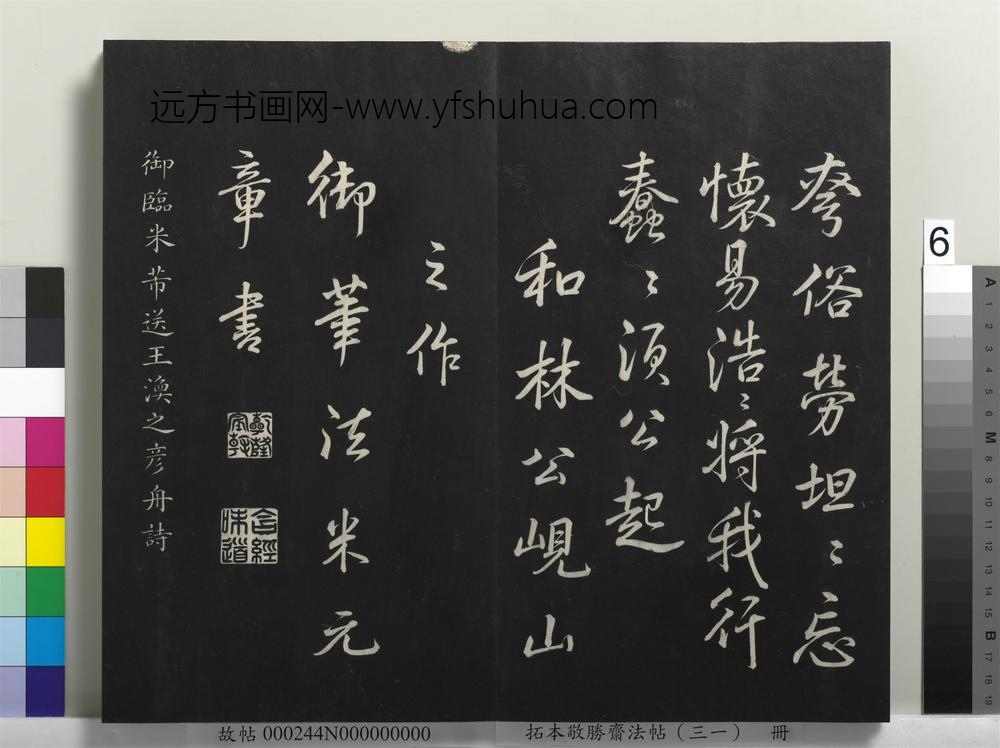 夸俗勞坦〻忘
懷易浩〻將我行
蠢〻須公起
和林公峴山
之作
御筆法米元
章書
乾隆宸翰
含經味道
御臨米芾送王渙之彥舟詩
远方书画网-www.yfshuhua.com
6
A
1
2
3
4
5
6
M
8
9
10
11
12
13
14
15
B
17
18
19
故帖 000244N000000000
拓本敬勝齋法帖（三一） 冊